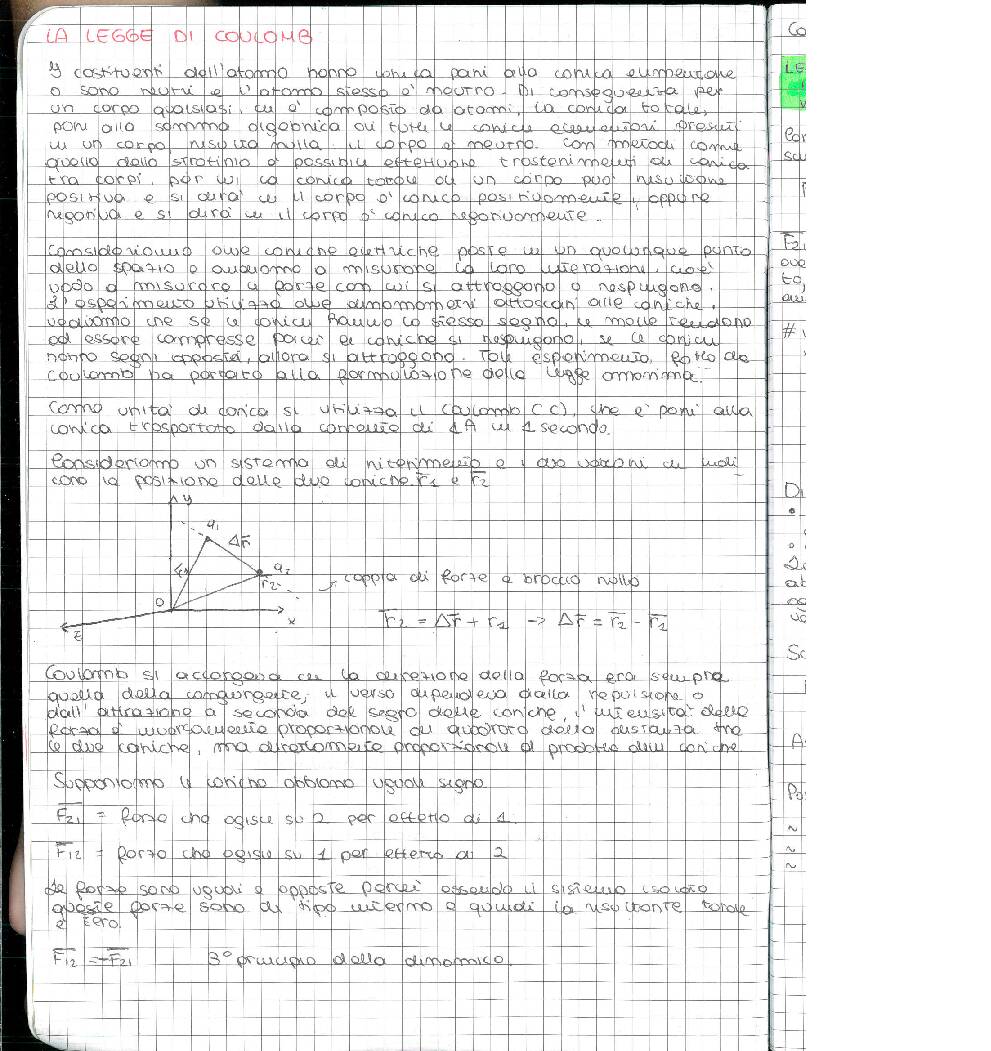 LA LEGGE DI COULOMB
I costituenti dell'atomo hanno carica pari alla carica elementare
o sono neutri e l'atomo stesso è neutro. Di conseguenza per
un corpo qualsiasi, che è composto da atomi, la carica totale,
pari alla somma algebrica di tutte le cariche elementari presenti
in un corpo, risulta nulla. Il corpo è neutro. Con metodi come
quello dello strofinio è possibile effettuare trasferimenti di carica
tra corpi, per cui la carica totale di un corpo può risultare
positiva e si dirà che il corpo è carico positivamente, oppure
negativa e si dirà che il corpo è carico negativamente.
Consideriamo due cariche elettriche poste in un qualunque punto
dello spazio e andiamo a misurare la loro interazione, cioè
vado a misurare le forze con cui si attraggono o respingono.
L'esperimento utilizza due dinamometri attaccati alle cariche.
Vediamo che se le cariche hanno lo stesso segno, le molle tendono
ad essere compresse perché le cariche si respingono, se le cariche
hanno segni opposti, allora si attraggono. Tale esperimento, fatto da
Coulomb ha portato alla formulazione della legge omonima.
Come unità di carica si utilizza il Coulomb (C), che è pari alla
carica trasportata dalla corrente di 1A in 1 secondo.
Consideriamo un sistema di riferimento e i due vettori che indi
cano la posizione delle due cariche r1 e r2
y
q1
Δr
r1
q2
r2
coppia di forze a braccio nullo
O
x
z
r2 = Δr + r1 -> Δr = r2 - r2
Coulomb si accorgeva che la direzione della forza era sempre
quella della congiungente, il verso dipendeva dalla repulsione o
dall'attrazione a seconda del segno delle cariche, l'intensità della
forza è inversamente proporzionale al quadrato della distanza tra
le due cariche, ma direttamente proporzionale al prodotto delle cariche
Supponiamo le cariche abbiano uguale segno.
F21 = forza che agisce su 2 per effetto di 1.
F12 = forza che agisce su 1 per effetto di 2
Le forze sono uguali e opposte perché essendo il sistema isolato
queste forze sono di tipo interno e quindi la risultante totale
è zero.
F12 = -F21 3° principio della dinamica.